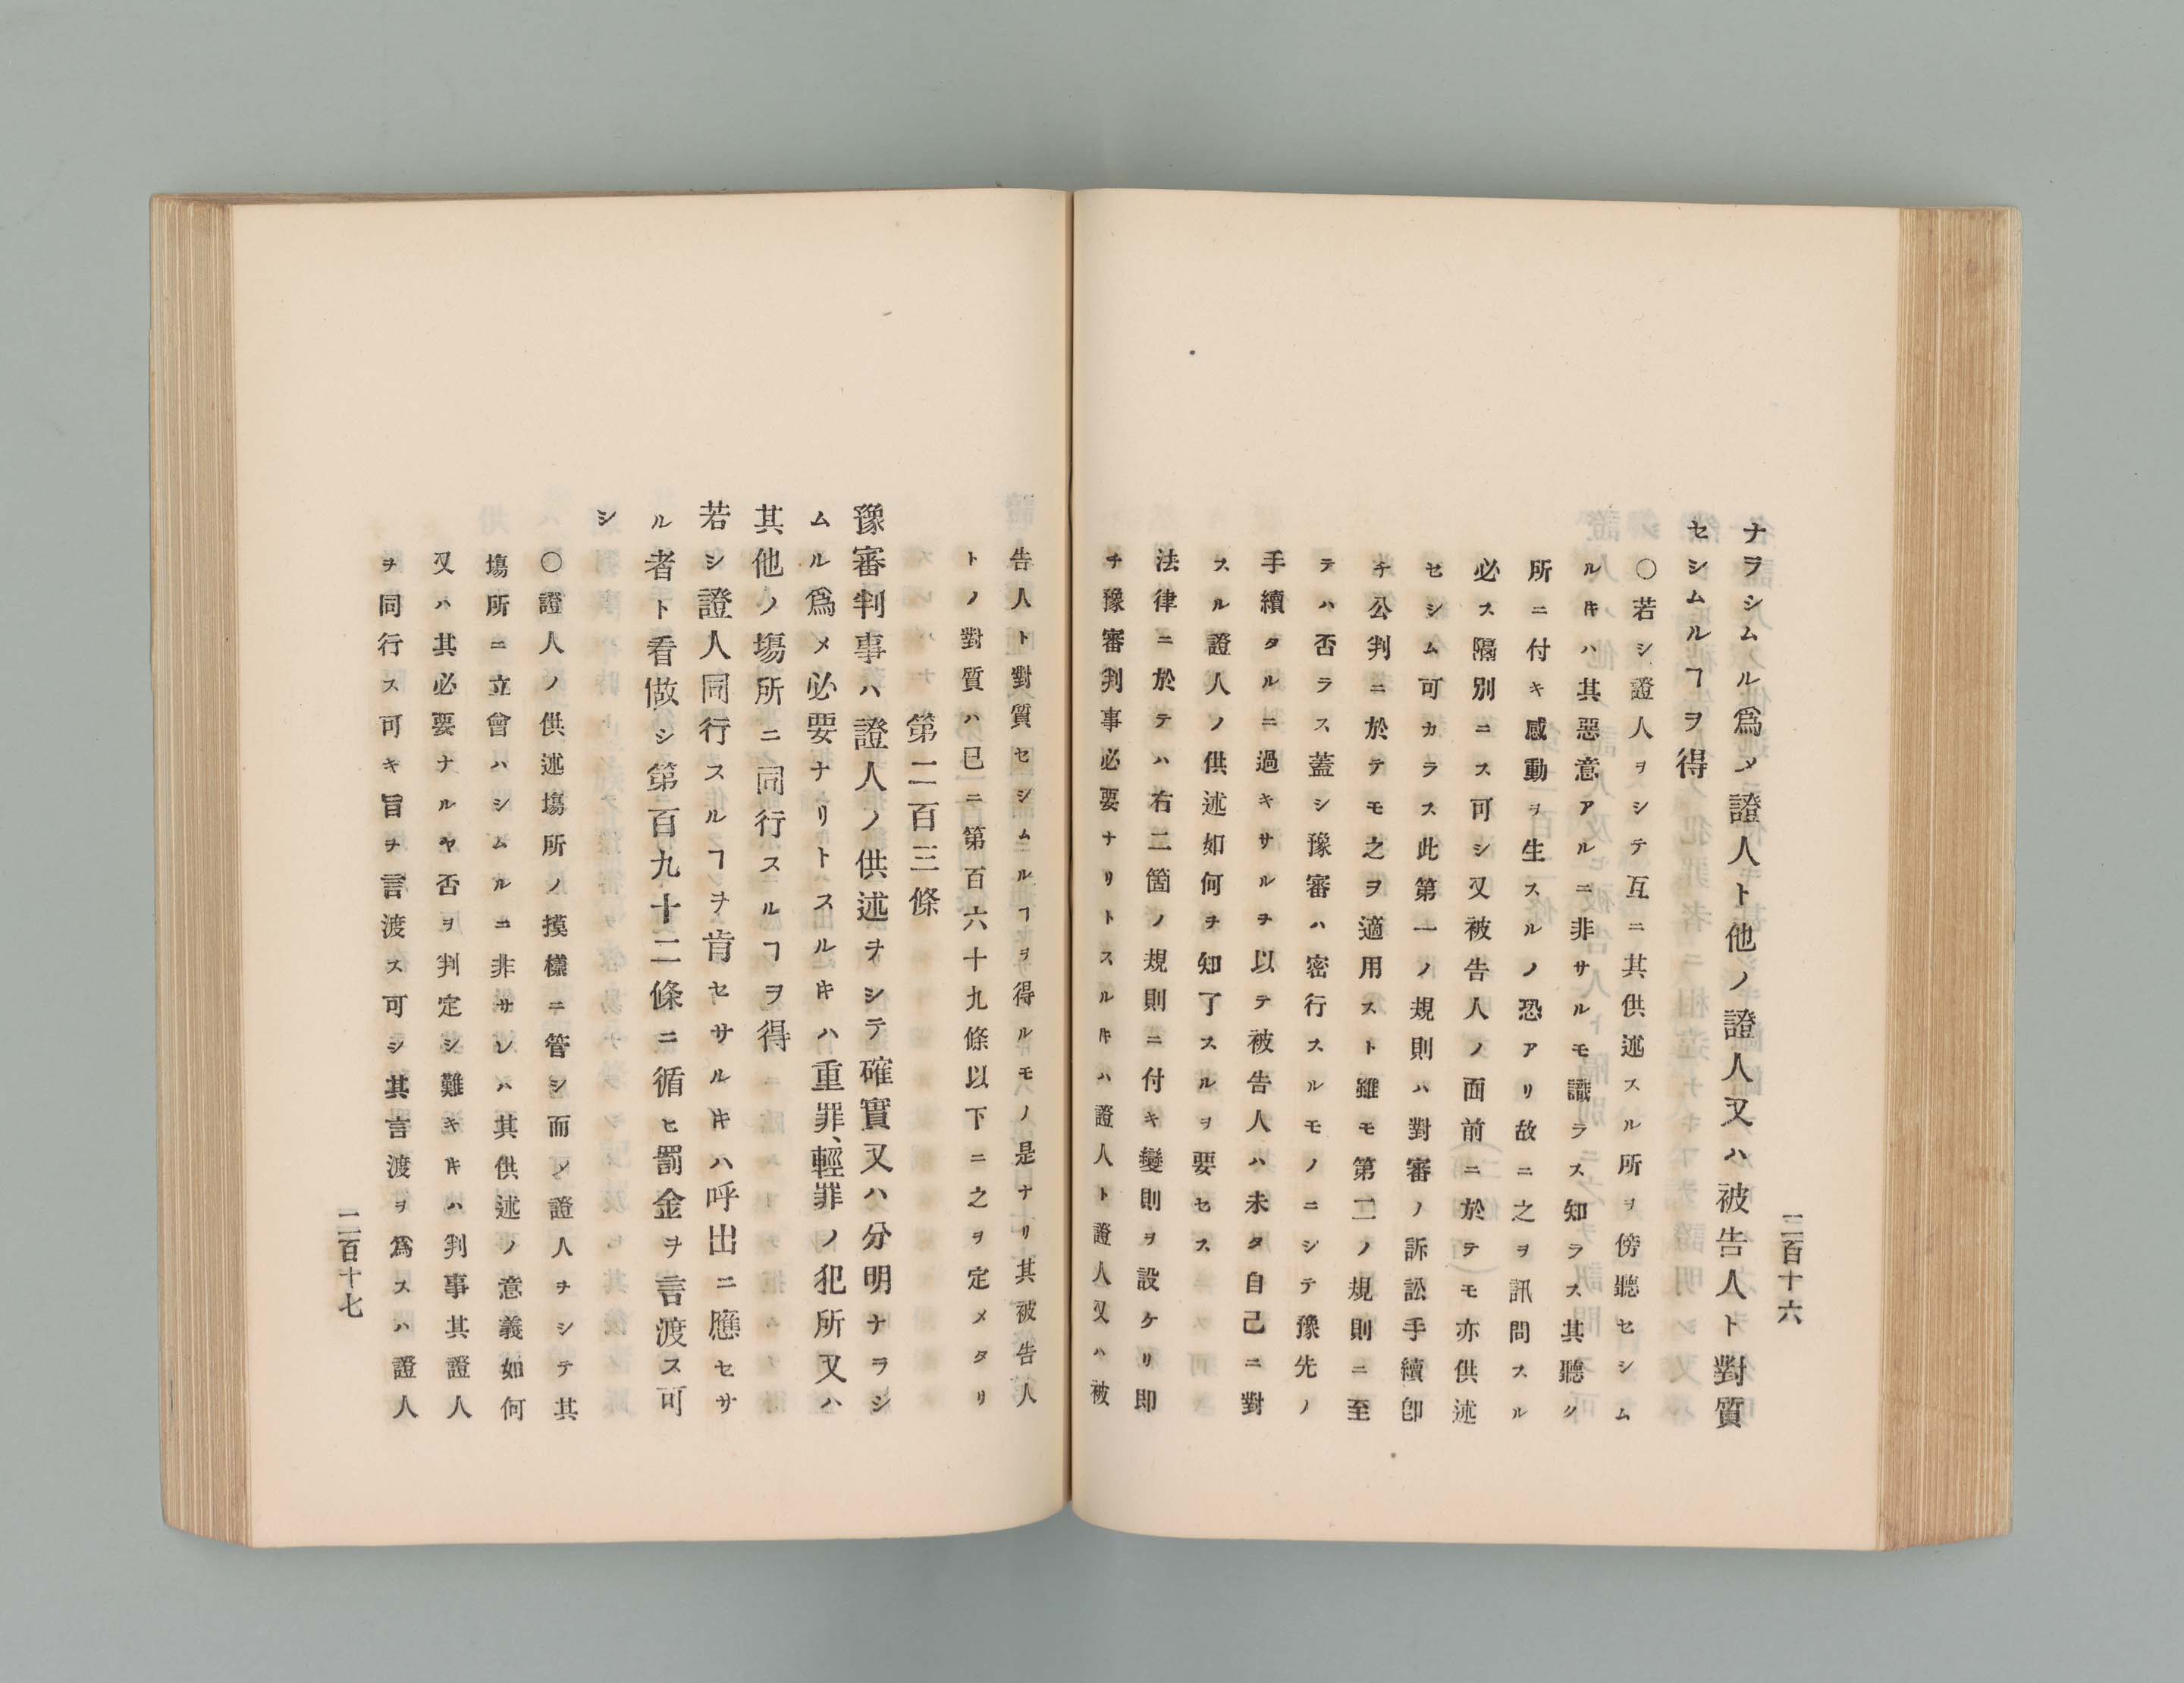 二百十六
ナヲシムル爲メ證人ト他ノ證人又ハ被告人ト對質
セシムルヿヲ得
〇若シ證人ヲシテ互ニ其供述スル所ヲ傍聽セシム
ルキハ其惡意アルニ非サルモ識ラス知ラス其聽ク
所ニ付キ感動ヲ生スルノ恐アリ故ニ之ヲ訊問スル
必ス隔別ニス可シ又被告人ノ面前ニ於テモ亦供述
セシム可カラス此第一ノ規則ハ對審ノ訴訟手續卽
チ公判ニ於テモ之ヲ適用スト雖モ第二ノ規則ニ至
テハ否ラス蓋シ豫審ハ密行スルモノニシテ豫先ノ
手續タルニ過キサルヲ以テ被告人ハ未タ自己ニ對
スル證人ノ供述如何ヲ知了スルヲ要セス
法律ニ於テハ右二箇ノ規則ニ付キ變則ヲ設ケリ即
チ豫審判事必要ナリトスルキハ證人ト證人又ハ被
告人ト對質セシムルヿヲ得ルモノ是ナリ其被告人
トノ對質ハ已ニ第百六十九條以下ニ之ヲ定メタリ
第二百三條
豫審判事ハ證人ノ供述ヲシテ確實又ハ分明ナラシ
ムル爲メ必要ナリトスルキハ重罪、輕罪ノ犯所又ハ
其他ノ塲所ニ同行スルヿヲ得
若シ證人同行スルヿヲ肯セサルキハ呼出ニ應セサ
ル者ト看做シ第百九十二條ニ循ヒ罰金ヲ言渡ス可
シ
〇證人ノ供述塲所ノ摸樣ニ管シ而メ證人ヲシテ其
塲所ニ立會ハシムルニ非サレハ其供述ノ意義如何
又ハ其必要ナルヤ否ヲ判定シ難キキハ判事其證人
ヲ同行ス可キ旨ヲ言渡ス可シ其言渡ヲ爲スハ證人
二百十七